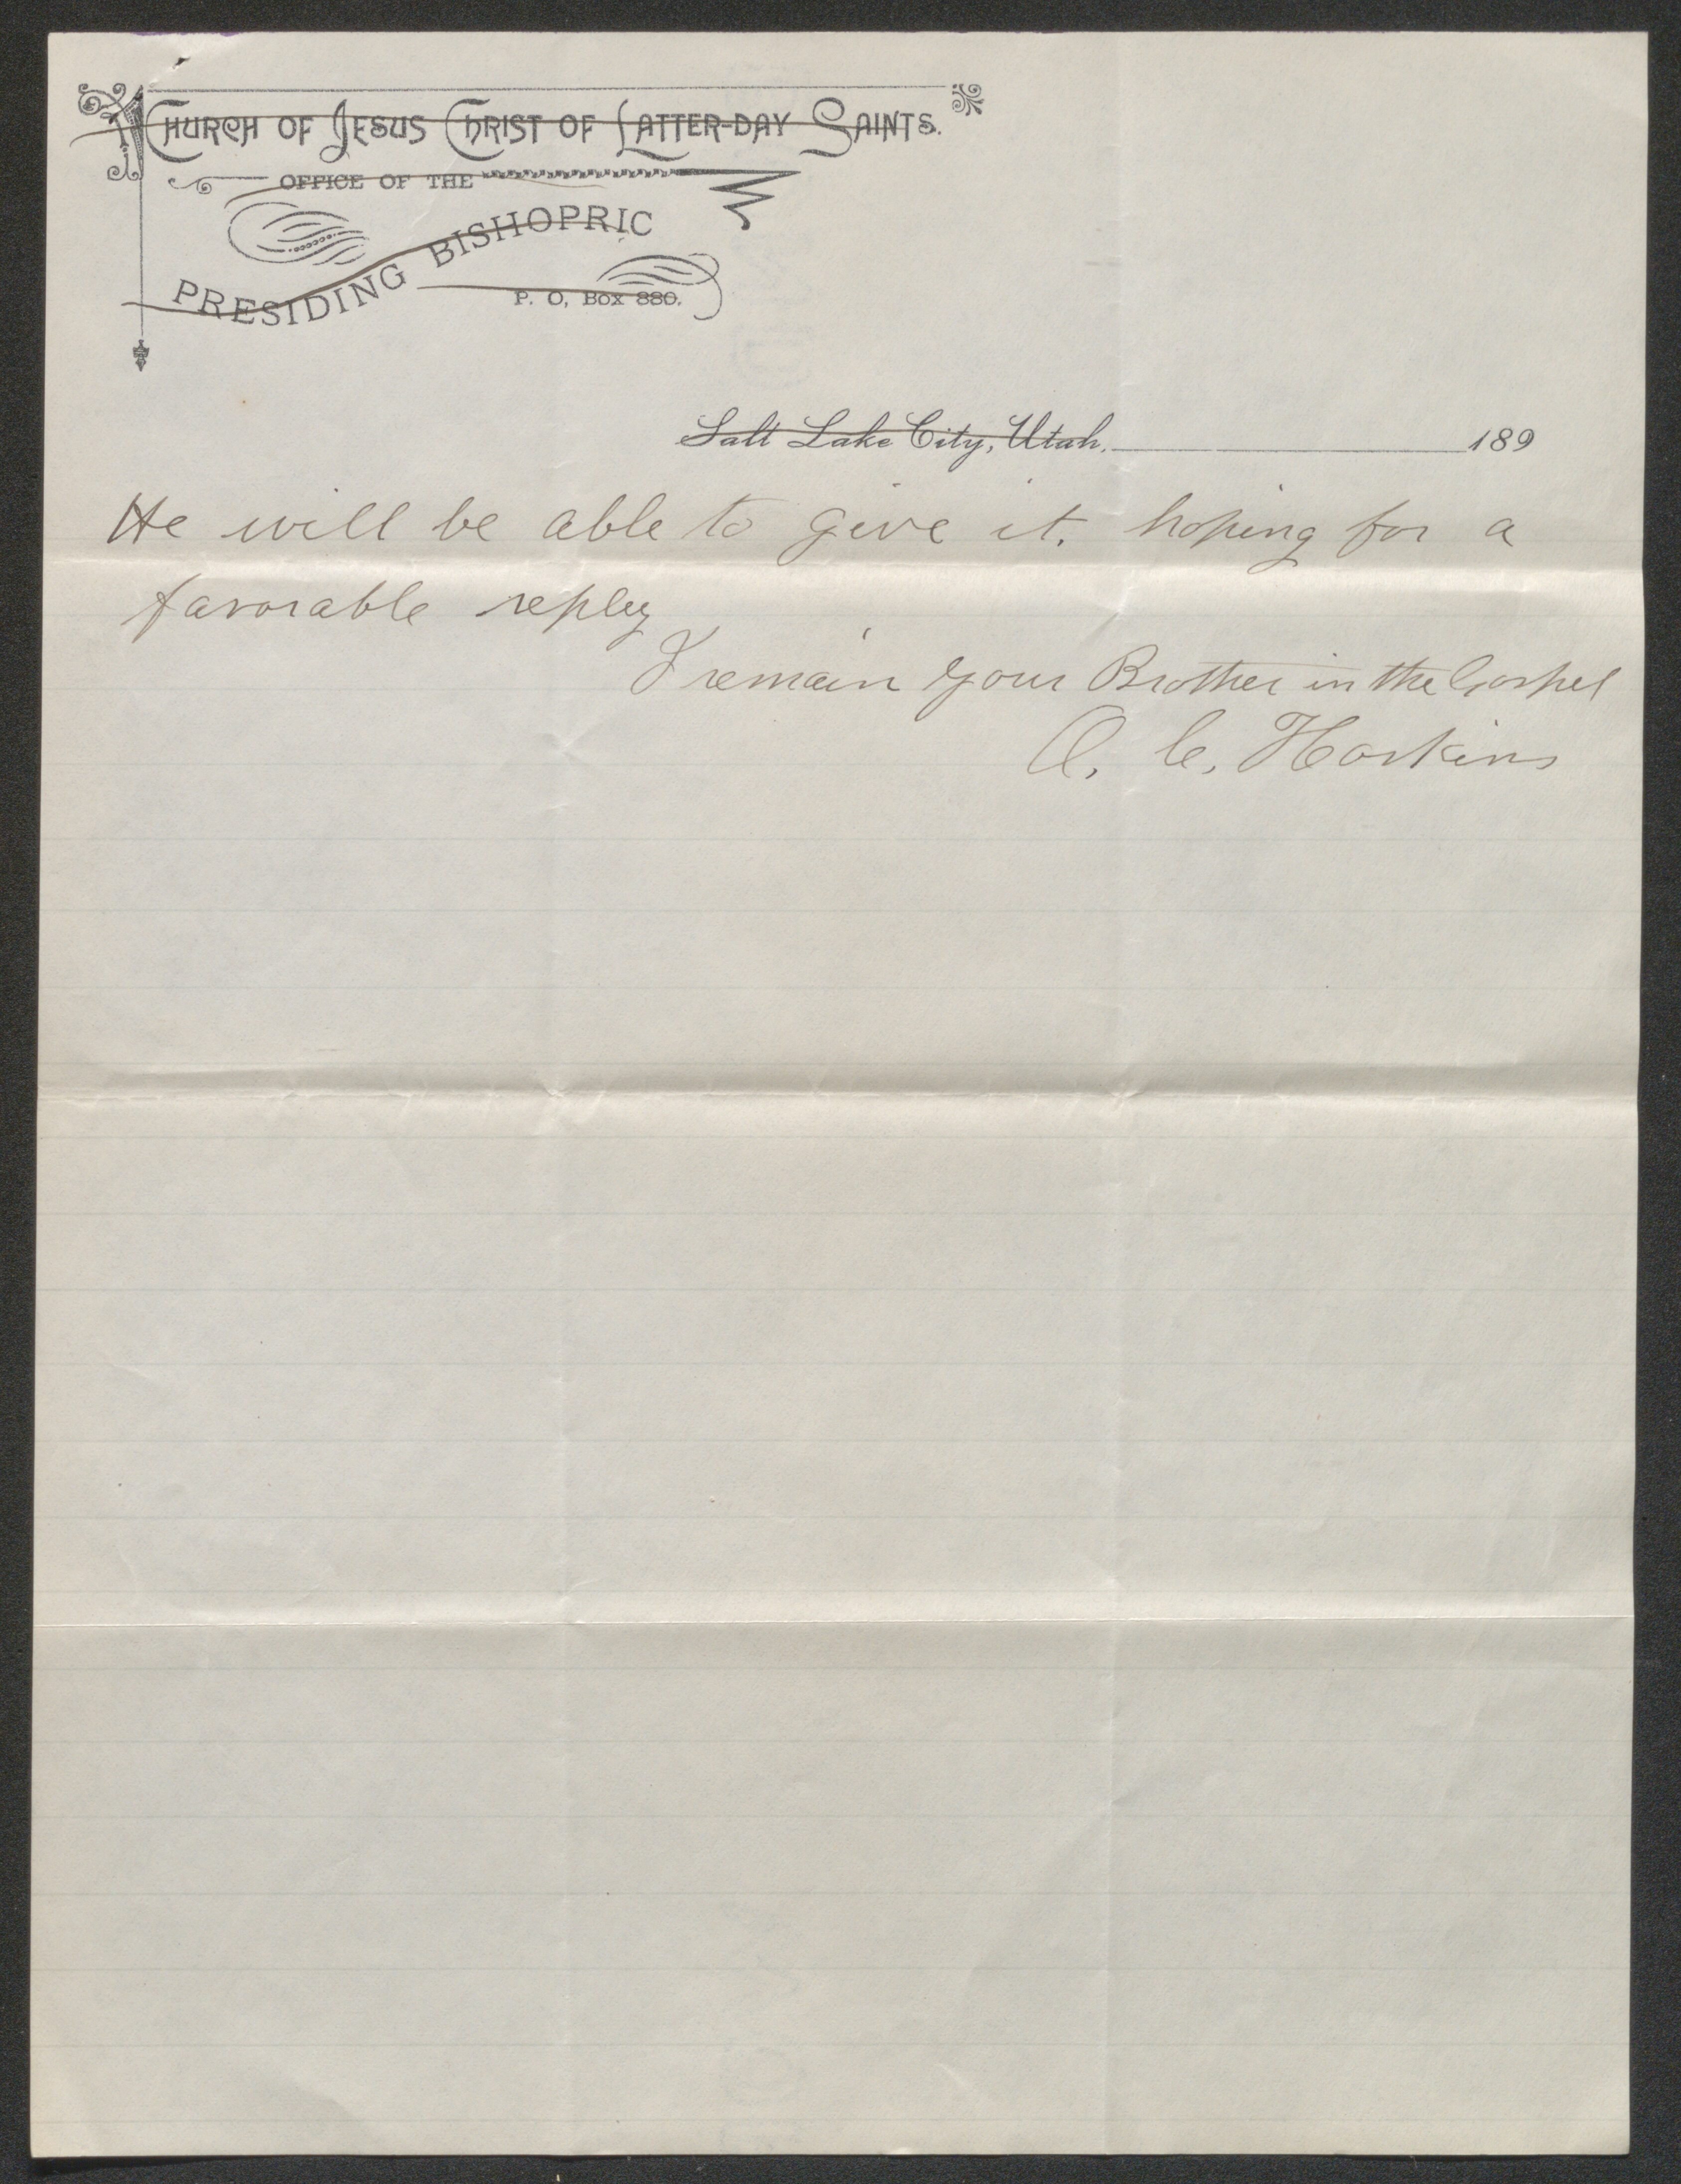 CHURCH OF JESUS CHRIST OF LATTER-DAY SAINTS.
OFFICE OF THE
PRESIDING BISHOPRIC
P. O, BOX 880.
Salt Lake City, Utah. 189
He will be able to give it. hoping for a
favorable reply
I remain your Brother in the Gospel
O. C. Hoskins